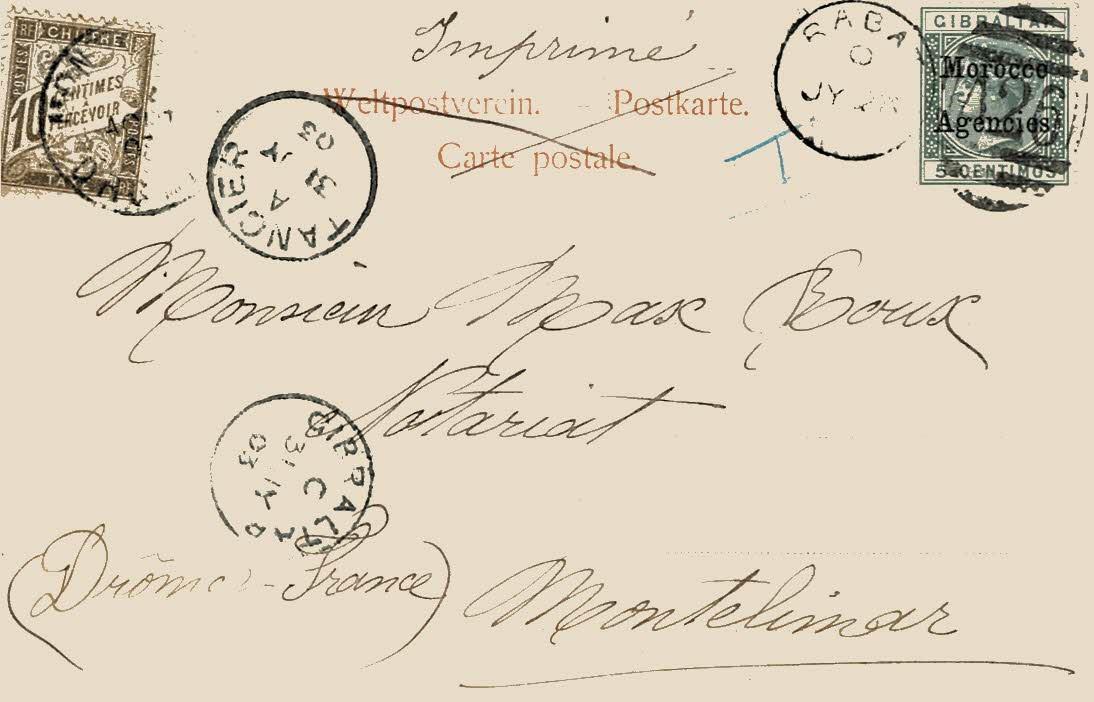 Imprimé
Weltpostverein. – Postkarte.
Carte postale.
RF CHIFFRE
POSTES
10 CENTIMES
À
PERCEVOIR
TANGIER
A
JY 31
03
T
RABA
JY
GIBRALTAR
Morocco
Agencies
5 CENTIMOS
Monsieur Max Roux
Notariat
GIBRALTAR
C
31 JY
03
(Drôme - France)
Montelimar